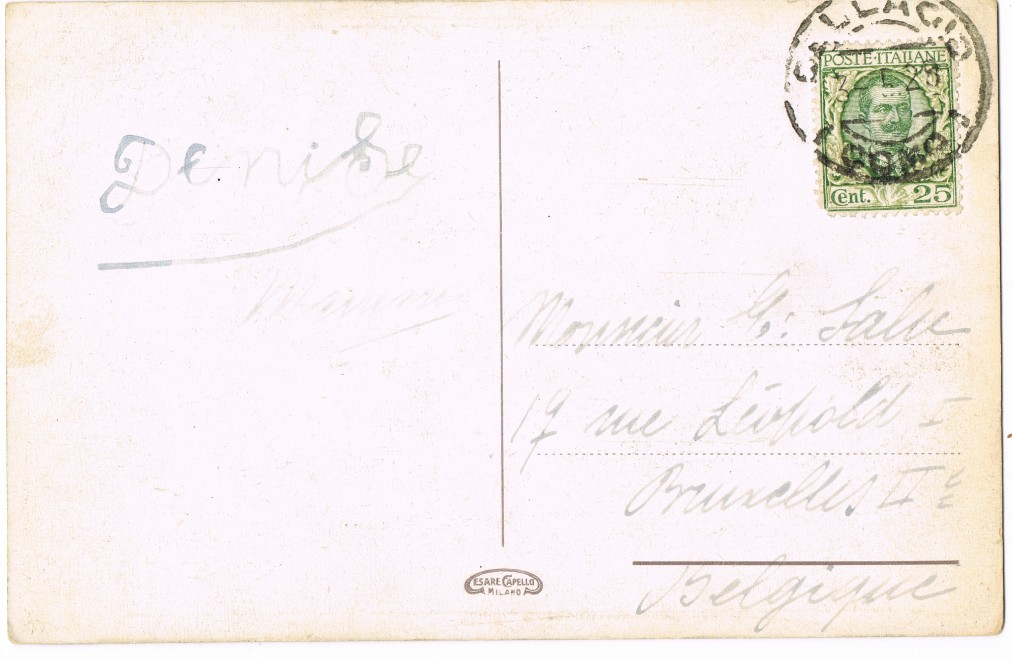 Denise
Maman
BELLAGIO
POSTE·ITALIANE
COMO
Cent. 25
Monsieur G: Salu
17 rue Léopold I
Bruxelles II
Belgique
CESARE CAPELLO
MILANO